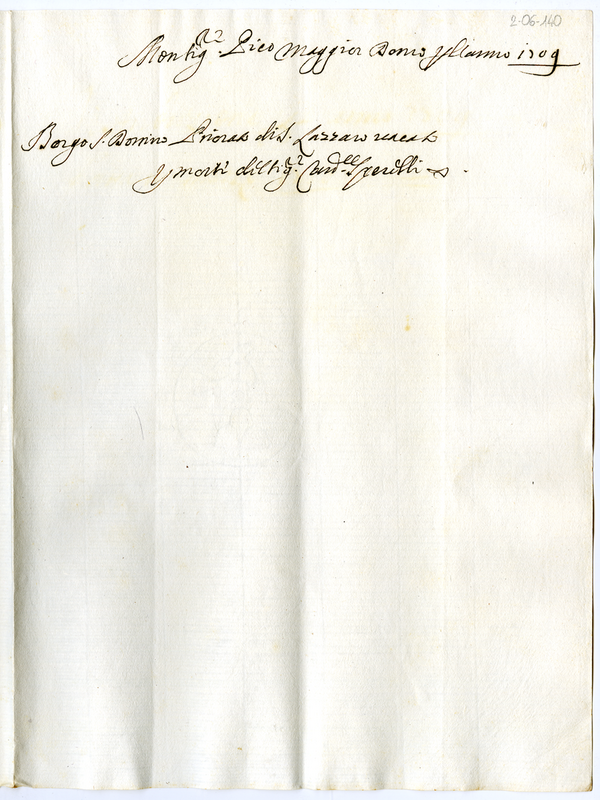 2-06-140
Monsig.r Pico Maggior Domo p l'anno 1709
Borgo S. Donino Priorato di S. Lazzaro vacato
p morte del Sig.r Card.le Sperelli